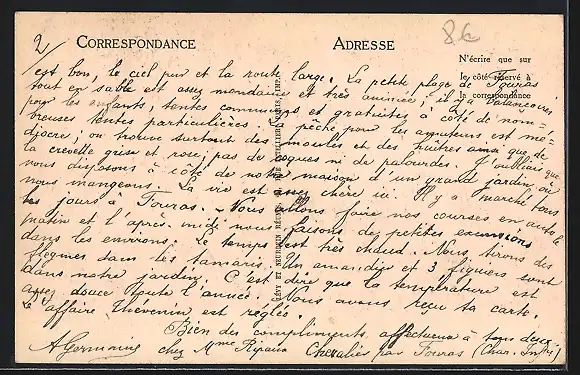 2/
CORRESPONDANCE
ADRESSE
86
N'écrire que sur
le côté réservé à
la correspondance
est bon, le ciel pur et la route large. La petite plage de Fouras
tout en sable est assez mondaine et très animée; il y a balançoires
pour les enfants, tentes communes et gratuites à côté de nom-
breuses tentes particulières. La pêche pour les amateurs est mé-
diocre; on trouve surtout des moules et des huîtres ainsi que de
la crevette grise et rose; pas de coques ni de palourdes. J'oubliais que
nous disposons à côté de notre maison d'un grand jardin où
nous mangeons. La vie est assez chère ici. Il y a marché tous
les jours à Fouras. Nous allons faire nos courses en auto le
matin et l'après-midi nous faisons des petites excursions
dans les environs. Le temps est très chaud. Nous tirons des
flegmes dans les tamaris. Un amandier et 3 figuiers sont
dans notre jardin. C'est dire que la température est
assez douce toute l'année. Nous avons reçu ta carte.
L'affaire Thévenin est réglée.
Bien des compliments affectueux à tous deux.
A Germaine chez Mme Ripaux Chevalier par Fouras (Char. Infre)
LEVY ET NEURDEIN RÉUNIS, 44, RUE LETELLIER, PARIS, IMP.